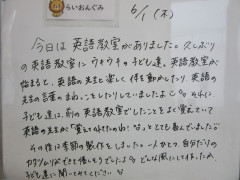 らいおんぐみ
6/1 (木)
今日は英語教室がありました。久しぶり
の英語教室にウキウキの子ども達。英語教室が
始まると、英語の先生と楽しく体を動かしたり英語の
先生の言葉のまねっこをしたりしていましたよ
子ども達は、前の英語教室でしたことをよく覚えていて
英語の先生が「覚えててくれたのね!」と、とても喜んでいました
その後は季節の製作をしました。一人ひとつ、自分だけの
カタツムリができて嬉しそうでしたよ どんな風にしてつくったか、
子ども達に聞いてみてください